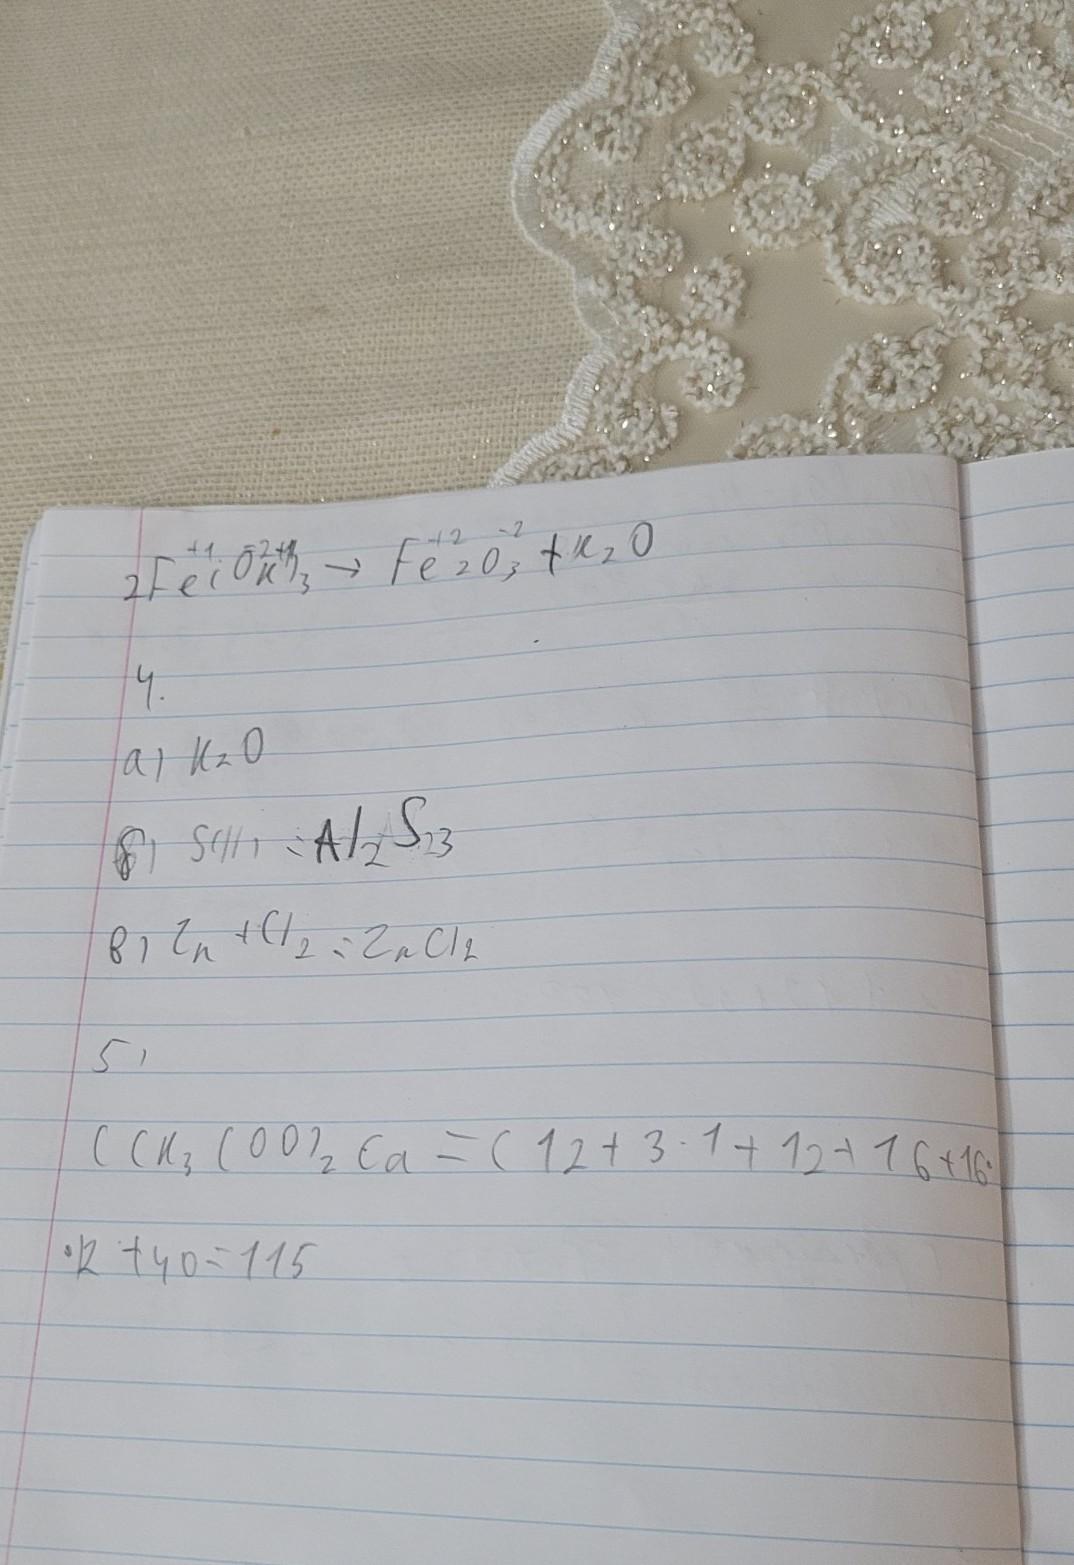 2Fe(OH)3 → Fe2O3 + H2O
4.
а) H2O
б) = Al2S3
в) Zn + Cl2 = ZnCl2
5)
(CH3COO)2Ca = (12 + 3·1 + 12 + 16 + 16·
·2 + 40 = 115